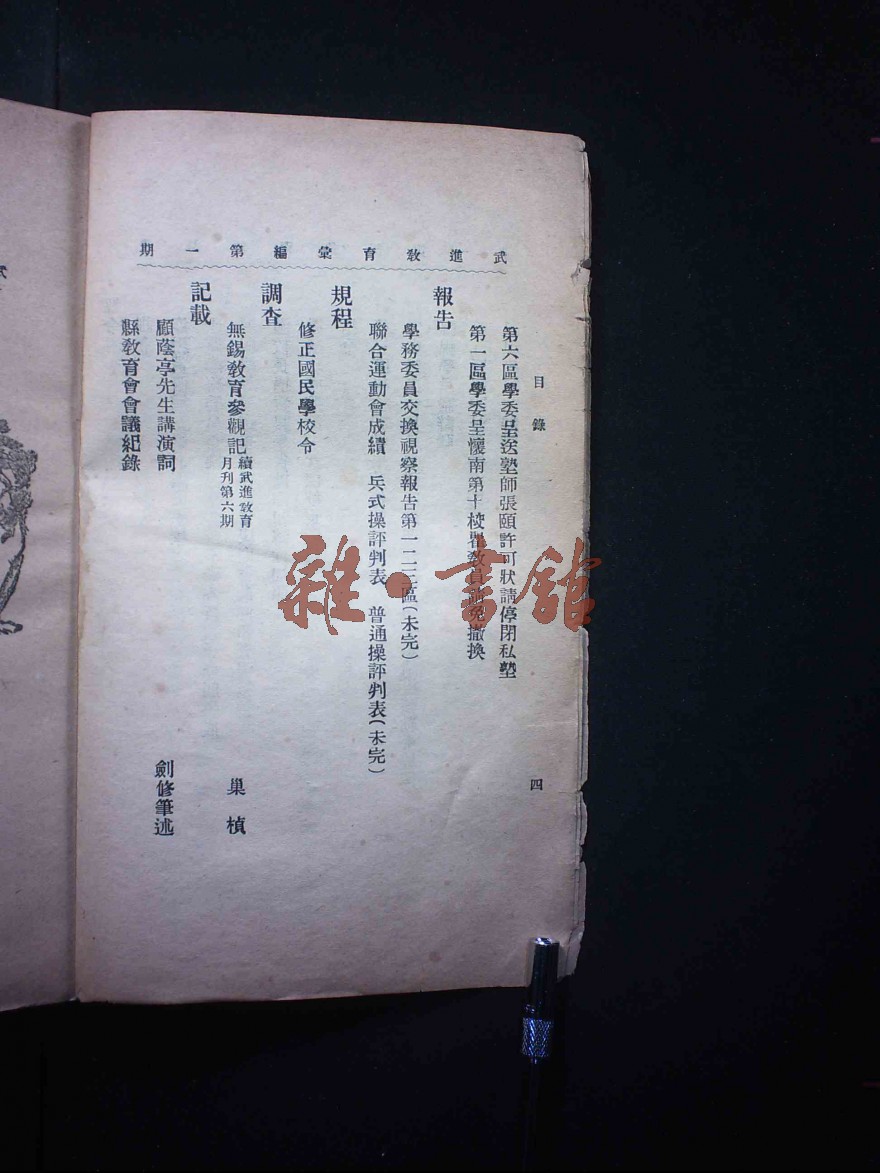 武進教育彙編第一期
目錄
四
第六區學委呈送塾師張頤許可狀請停閉私塾
第一區學委呈懷南第十校
教員
免撤換
報告
學務委員交換視察報告第一二三區(未完)
聯合運動會成績 兵式操評判表 普通操評判表(未完)
規程
修正國民學校令
調查
無錫教育參觀記 續武進教育月刊第六期 巢楨
記載
顧蔭亭先生講演詞 劍修筆述
縣教育會會議紀錄
雜·書館